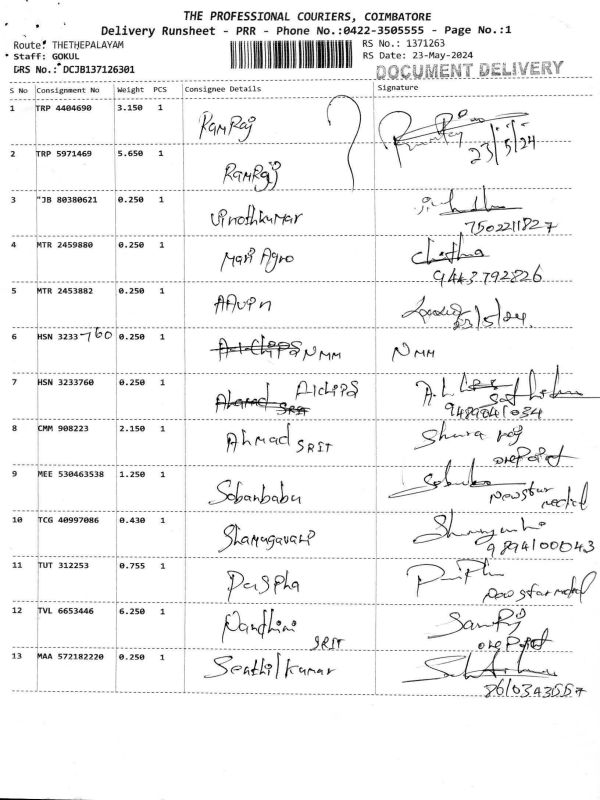 THE PROFESSIONAL COURIERS, COIMBATORE
Delivery Runsheet - PRR - Phone No.:0422-3505555 - Page No.:1
Route: THETHEPALAYAM
RS No.: 1371263
Staff: GOKUL
RS Date: 23-May-2024
DRS No.: DCJB137126301
DOCUMENT DELIVERY
S No Consignment No Weight PCS Consignee Details Signature
1 TRP 4404690 3.150 1 Ramraj
23/5/24
2 TRP 5971469 5.650 1 Ramraj
3 "JB 80380621 0.250 1 Vinothkumar
7502211827
4 MTR 2459880 0.250 1 Mari Agro Chitha
9443792826
5 MTR 2453882 0.250 1 AAvin
23/5/24.
6 HSN 3233760 0.250 1 NMM NMM
7 HSN 3233760 0.250 1 AIchips
9489041034
8 CMM 908223 2.150 1 Ahmad SRIT
onepoint
9 MEE 530463538 1.250 1 Sobanbabu
newstar medical
10 TCG 40997086 0.430 1 Shamugavani
9894100043
11 TUT 312253 0.755 1 Puspha
new star medical
12 TVL 6653446 6.250 1 Nandhini SRIT
onepoint
13 MAA 572182220 0.250 1 Senthilkumar
8610343557